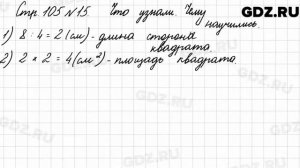 Стр. 105 №15. Что узнали. Чему
научились
1) 8 : 4 = 2 (см) - длина стороны
квадрата.
2) 2 × 2 = 4 (см²) - площадь квадрата.
GDZ.RU
GDZ.RU
GDZ.RU
GDZ.RU
GDZ.RU
GDZ.RU